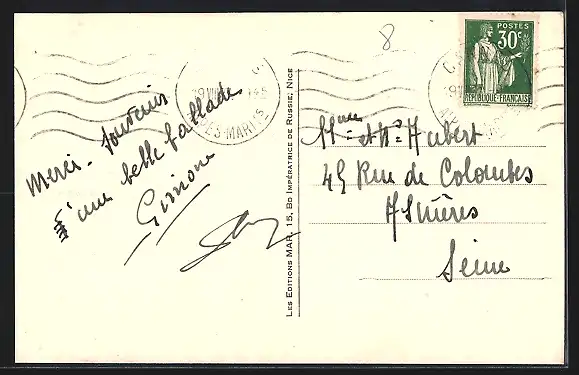 8
POSTES
30c
RÉPUBLIQUE FRANÇAISE
Merci - souvenir
d'une belle ballade
Simone
LES EDITIONS MAR, 15, BD IMPÉRATRICE DE RUSSIE, NICE
Mme et Mr Hubert
45 Rue de Colombes
Asnières
Seine